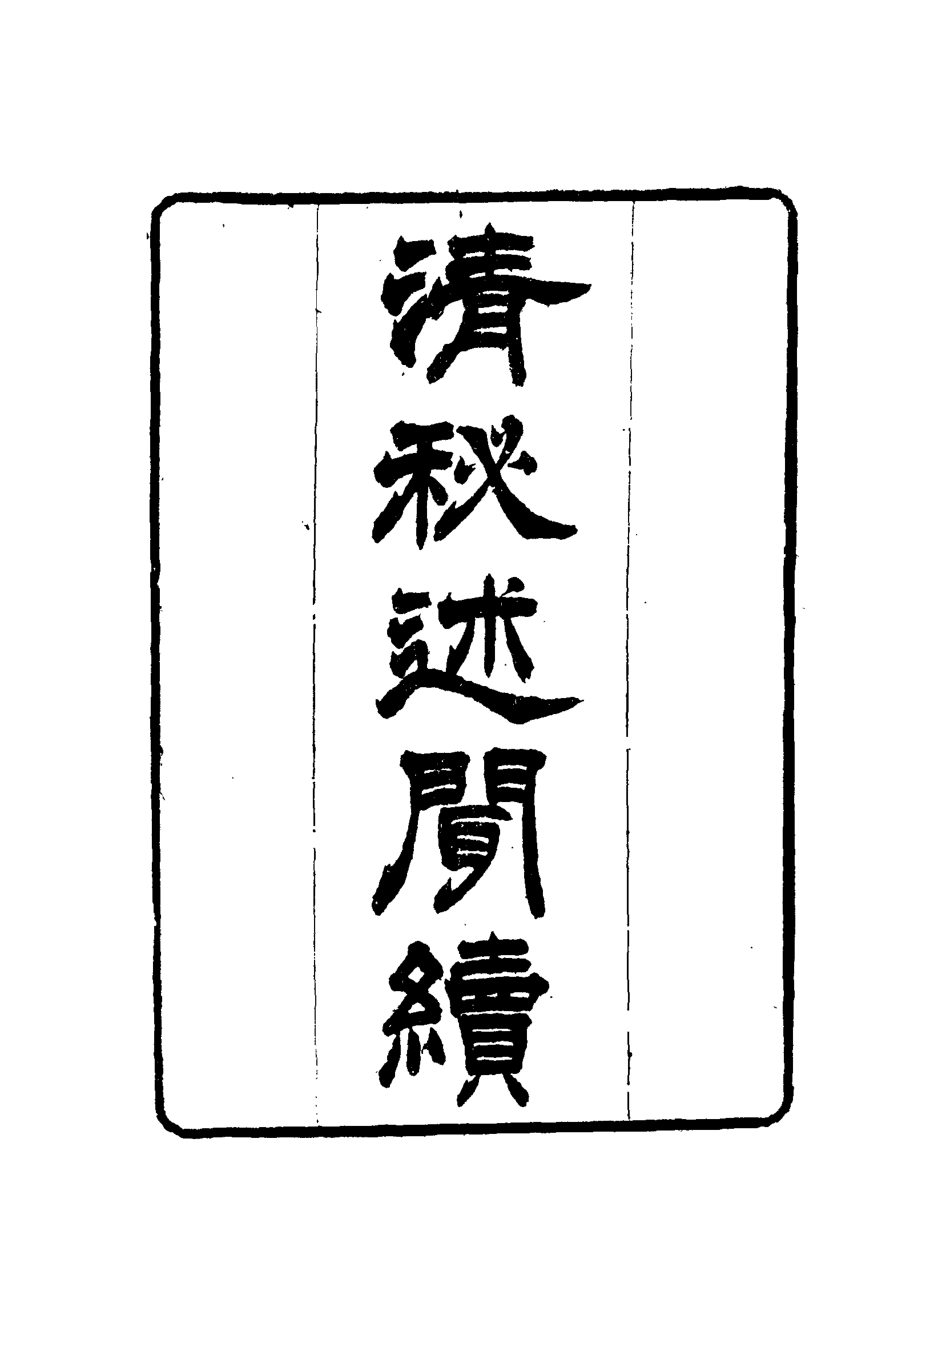 清秘述聞續